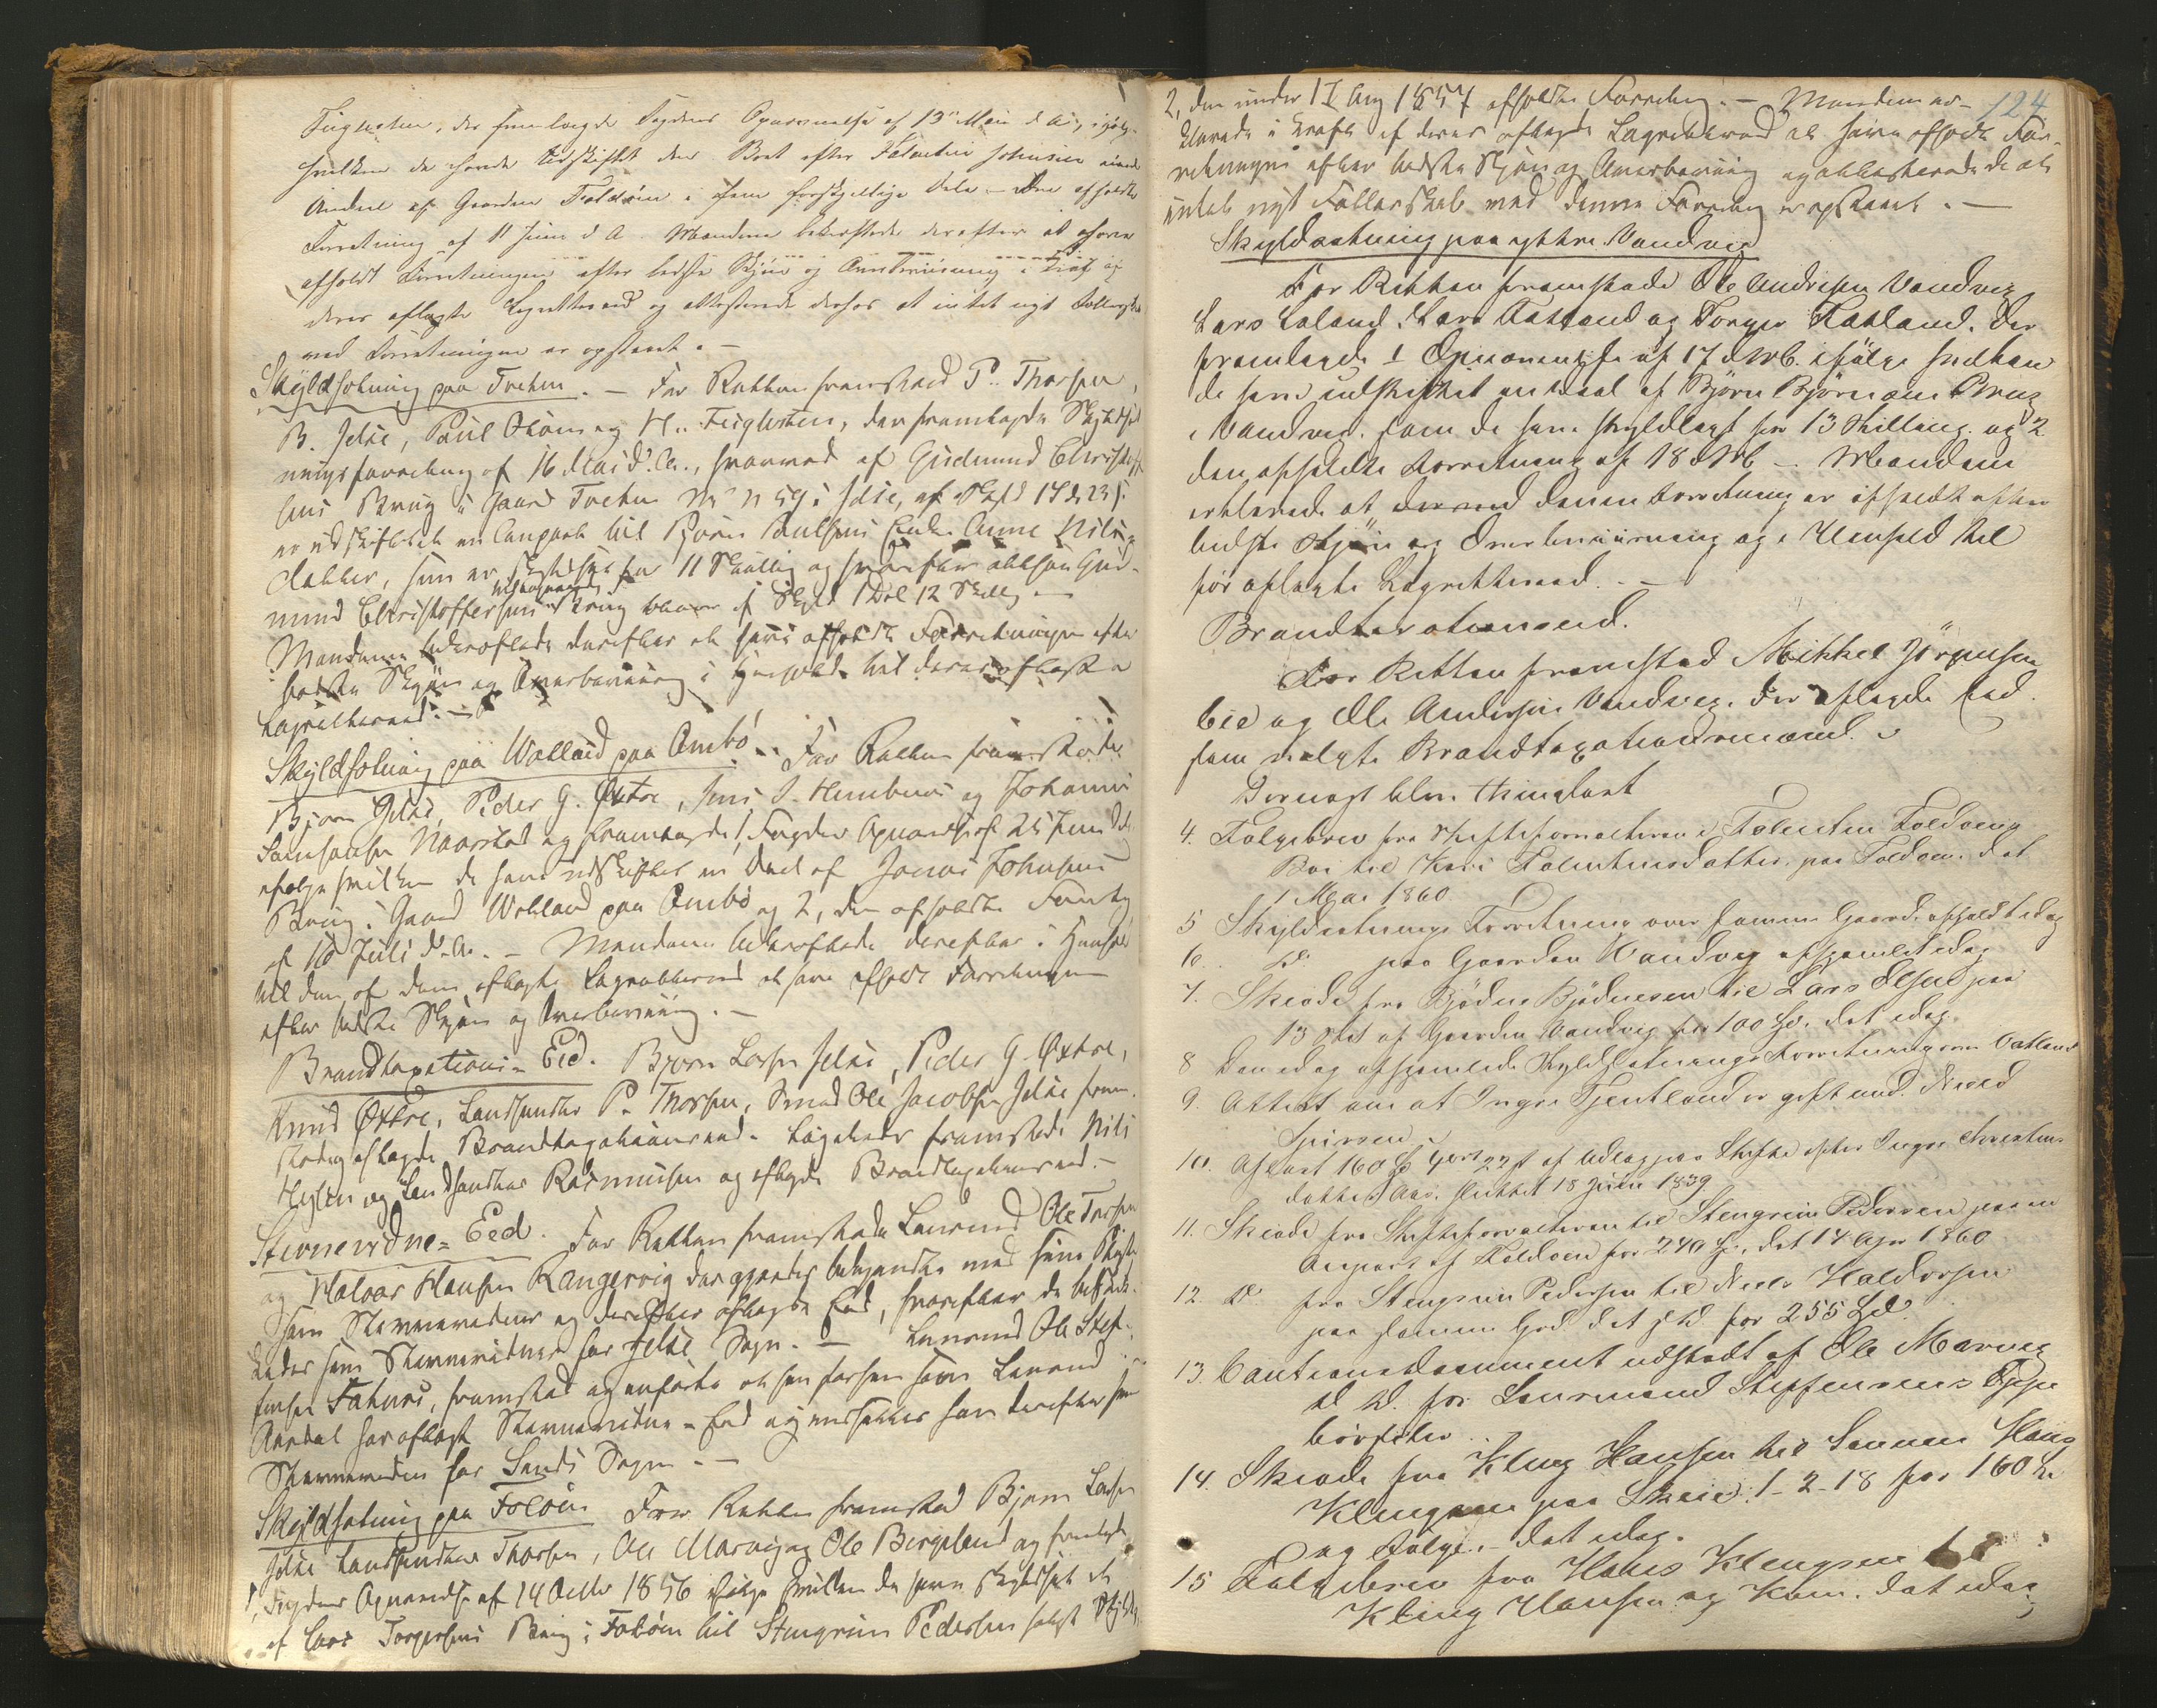 Fuglesten, der fremlagde Fogdens Opnævnelse af 13de Mai d. A., ifølge
hvilken de havde udskiftet den Bret efter Valentin Johnsen eiende
Andeel af Gaarden Foldøen i fem forskjellige Dele - den afholdte
Forretning af 11 Juni d A. Mændene bekræftede derefter at have
afholdt Forretningen efter bedste Skjøn og Overbeviisning i Kraft af
deres aflagte Lagrettesed og attesterede derhos at intet nyt Fællesskab
ved Forretningen er opstaaet. -
Skyldsætning paa Tveten. - For Retten fremstod P. Thorsen,
B. Jelse, Poul Økom og H. Fuglesten, der fremlagde Skyldsæt
ningsforretning af 16 Mai d. A., hvorved af Gudmund Christoffer
sens Brug i Gaard Tveten Ma N 59 i Jelse, af Skyld
er udskiftet en Anpart til Bjørn Paulsens Enke Anne Nils
datter, som er skyldsat for 11 Skilling og hvorefter altsaa Gud-
mund Christoffersens tilbageværende Brug bliver af Skyld 1 Dal 12 Skill. -
Mændene bekræftede derefter at have afholdt Forretningen efter
bedste Skjøn og Overbeviisning i Henhold til deres aflagte
Lagrettesed. -
Skyldsætning paa Watland paa Ombø. - For Retten fremstode
Bjørn Jelse, Peder G. Øxtre, Jens J. Hembnes og Johannes
Samsonsen Naarstad og fremlagde 1, Fogdens Opnævnelse af 25 Juni d. A.
ifølge hvilken de have udskiftet en Deel af Jonas Johnsens
Brug i Gaard Wetland paa Ombø og 2, den afholdte Forretn
af 10 Juli d. A. - Mændene bekræftede derefter i Henhold
til den af dem aflagte Lagrettesed at have afholdt Forretningen
efter bedste Skjøn og Overbeviisning. -
Brandtaxations-Eed. Bjørn Larsen Jelse, Peder G. Øxtre,
Knud Øxtre, Landhandler P. Thorsen, Smed Ole Jacobsen Jelse frem
stod og aflagde Brandtaxationseed. Ligeledes fremstode Nils
Heglen og Landhandler Rasmussen og aflagde Brandtaxationseed. -
Stevnevidne-Eed. For Retten fremstode Lensmand Ole Torsen
og Halvor Hansen Rangervig der gjordes bekjendte med sine Pligter
som Stevnevidner og derefter aflagde Eed, hvorefter de beskik-
kedes som Stevnevidner for Jelse Sogn. - Lensmand Ole Stef-
fensen Fatnes, fremstod og anførte at han forhen som Lensmand i
Aardal har aflagt Stevnevidne-Eed og ansættes han derefter som
Stevnevidne for Sands Sogn. -
Skyldsætning paa Foløen For Retten fremstod Bjørn Larsen
Jelse Landhandler Thorsen, Ole Marvig og Ole Bergeland og fremlagde
1, Fogdens Opnævnelse af 14 Octbr 1856 ifølge hvilken de have skyldsat et
af Lars Torgersens Brug i Foløen til Stengrim Pedersen solgt Stykke,
124
2, den under 17 Aug 1857 afholdte Forretning. - Mændene er-
klærede i Kraft af deres aflagte Lagrettesed at have afholdt For-
retningen efter bedste Skjøn og Overbeviisning og attesterede de at
intet nyt Fællesskab ved denne Forretning er opstaaet. -
Skyldsætning paa yttre Vandvig
For Retten fremstode Ole Andersen Vandvig
Lars Laland, Lars Tatland og Torger Hatland. Der
fremlagde 1 Opnævnelse af 17 d Mts. ifølge hvilken
de have udskiftet en Deel af Bjørn Bjørnsens Brug
i Vandvig. som de have skyldlagt for 13 Skilling. og 2
den afholdte Forretning af 18 d Mts - Mændene
erklærede at denne Forretning er afholdt efter
bedste Skjøn og Overbeviisning og i Henhold til
før aflagte Lagrettesed. -
Brandtaxationseed.
For Retten fremstod Mikkel Jörgensen
Eie og Ole Andersen Vandvig. der aflagde Eed
som valgte Brandtaxationsmænd.
Dernæst blev thinglæst
4. Følgebrev fra Skifteforvalteren i Falentin Foldøens
Bo til Kari Falentinsdatter paa Foldøen. dat
1 Mai 1860
5 Skyldsætnings Forretning over samme Gaard afholdt idag
6. Do paa Gaarden Vandvig afhjemlet idag
7. Skiøde fra Bjødne Bjødnesen til Lars Olsen paa
13 Skl af Gaarden Vandvig for 100 Spd. dat idag.
8 Den idag afhjemlede Skyldsætnings Forretning over Vatland
9. Attest om at Inger Tjentland er gift med
10. Aflæst 160 Spd 4 ort 22 s af Udlæg paa Skifte efter Inger Christens
datter Aas. sluttet 18 Juni 1839
11. Skiøde fra Skifteforvalteren til Stengrim Pedersen paa en
Anpart af Foldøen for 240 Spd. dat 14 Apr 1860
12. Do fra Stengrim Pedersen til Niels Haldorsen
paa samme Grd dat s D. for 255 Spd.
13. Cautionsdocument udstædt af Ole Marvig
d D. for Lensmand Steffensens Oppe
börseler.
14. Skiøde fra Kling Hansen til Sønnen Hans
Klingsen paa Skeie. 1-2-18 for 160 Spd
og Følge. - dat idag.
15 Følgebrev fra Hans Klengsen til
Kling Hansen og Kone. dat idag